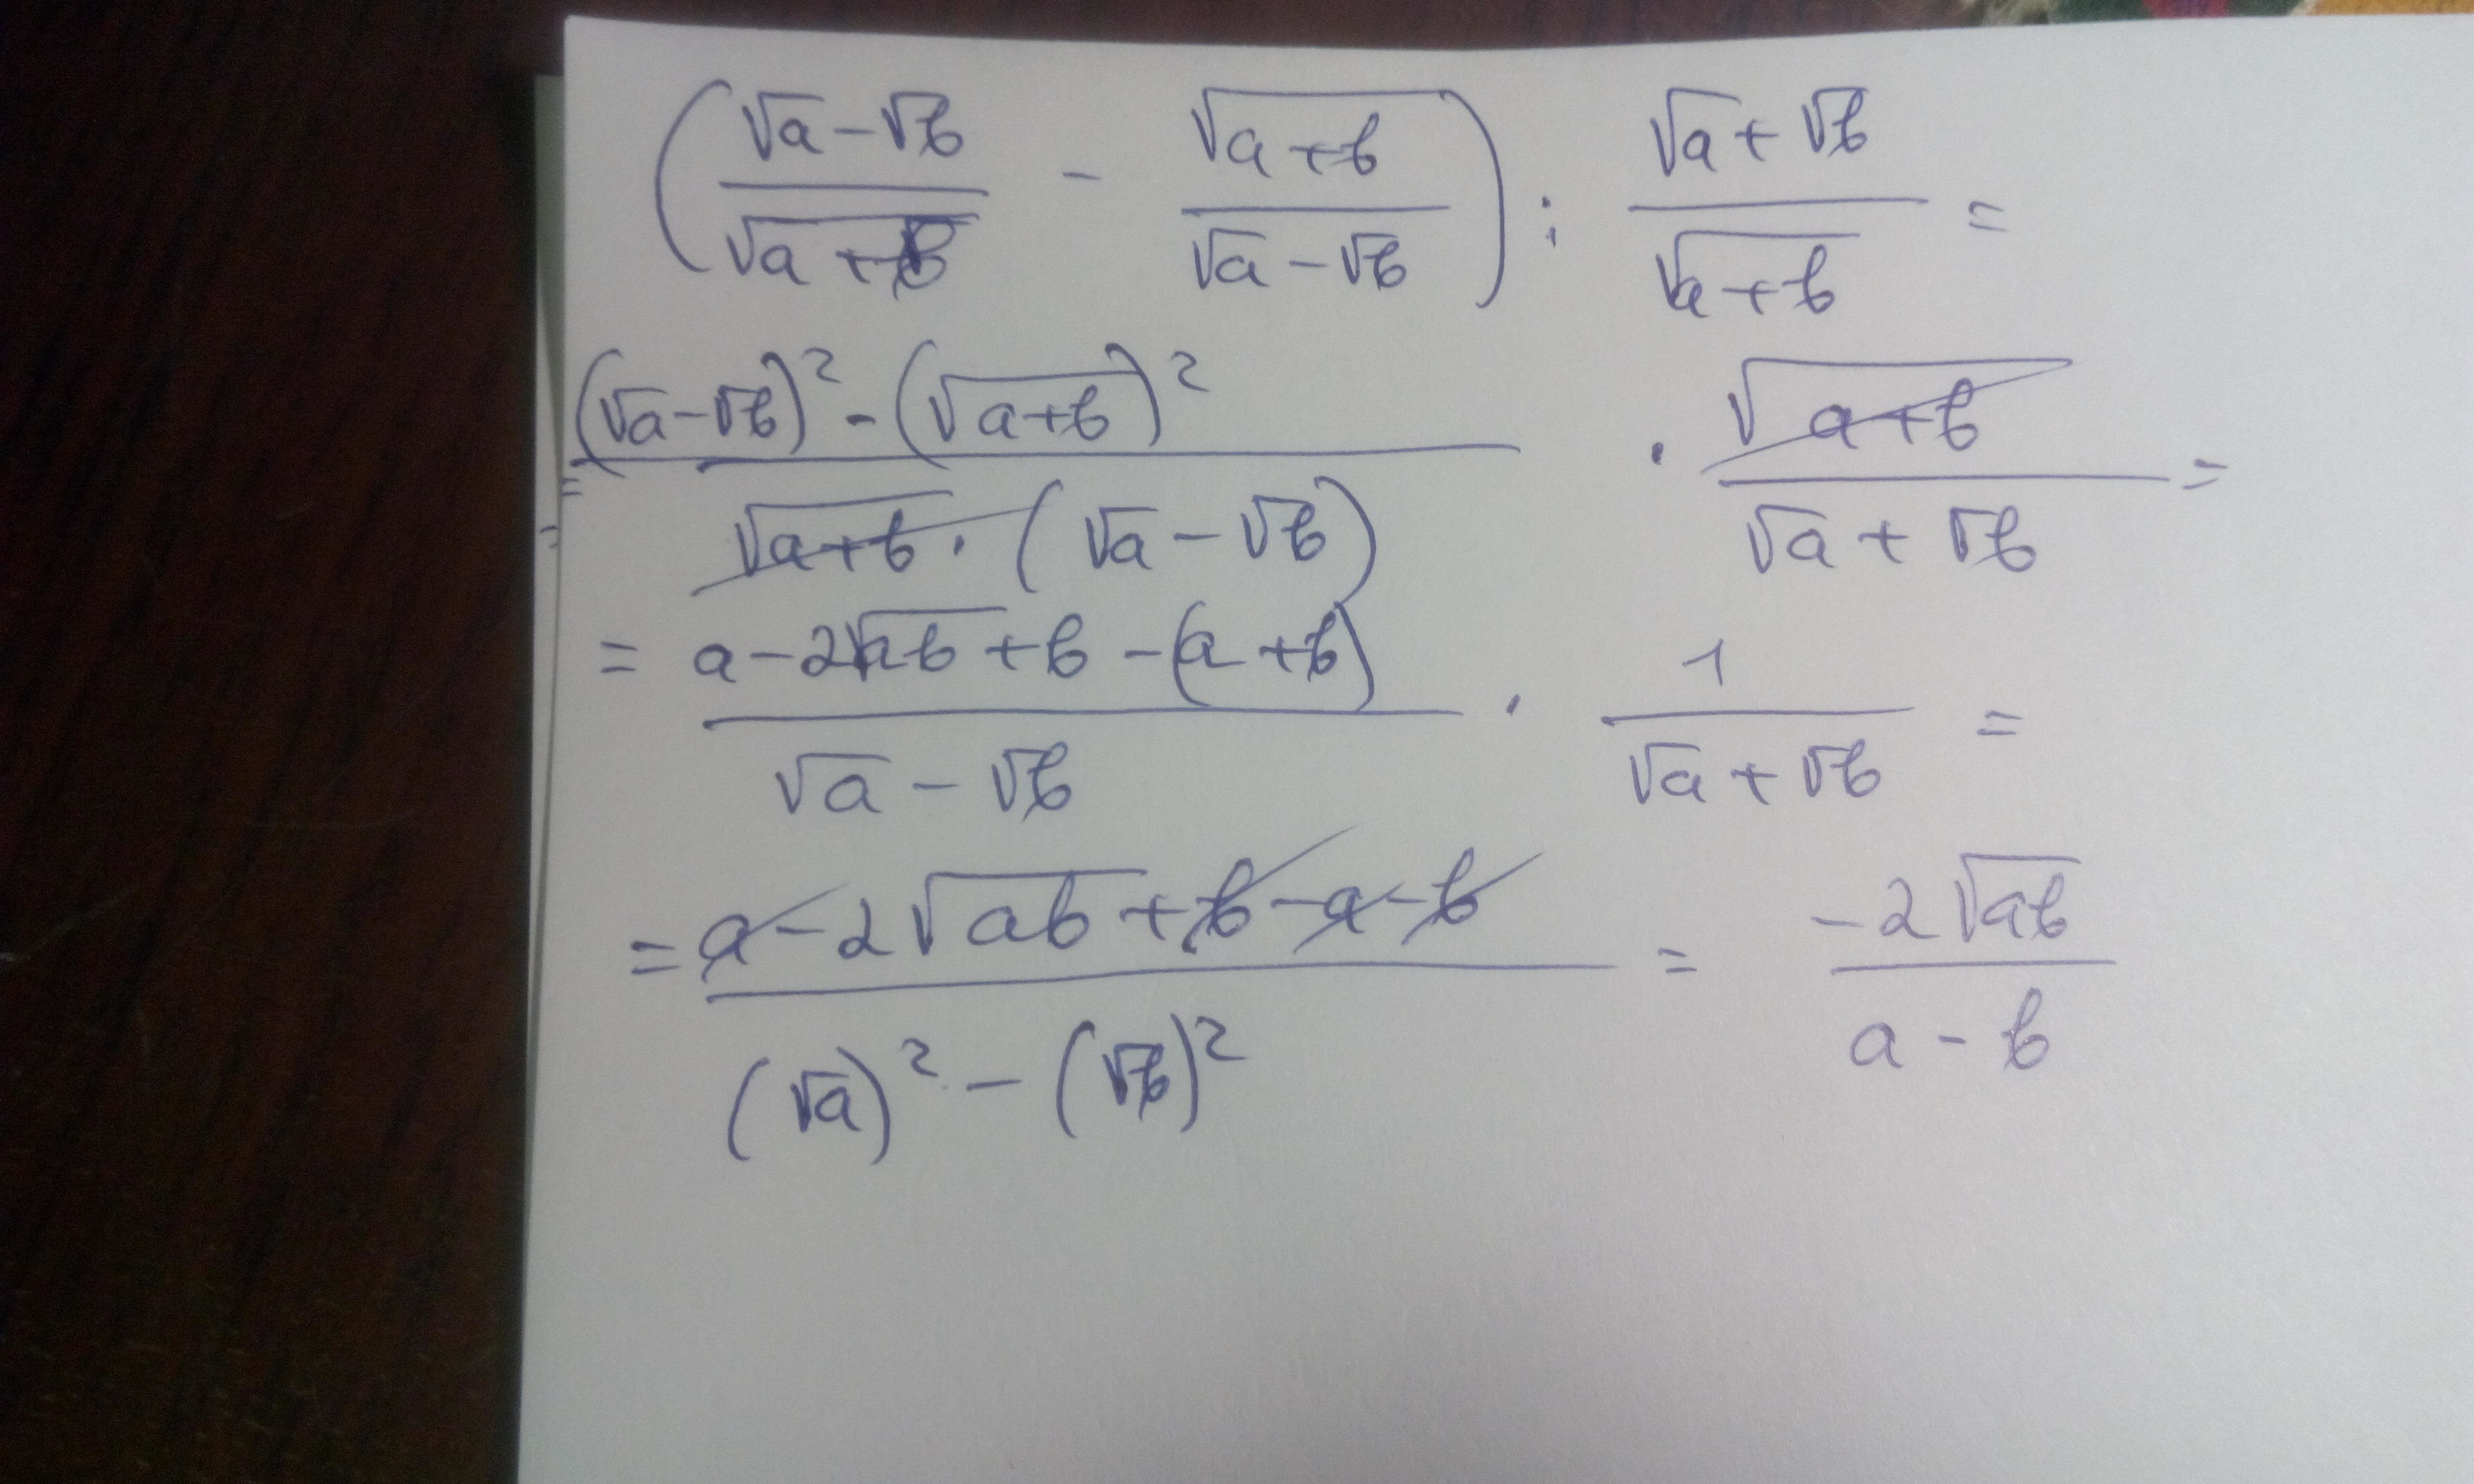 (√a-√b / √(a+b) - √(a+b) / √a-√b) : √a+√b / √(a+b) =
= (√a-√b)² - (√(a+b))² / √(a+b) · (√a-√b) · √(a+b) / √a+√b =
= a-2√ab+b-(a+b) / √a-√b · 1 / √a+√b =
= a-2√ab+b-a-b / (√a)²-(√b)² = -2√ab / a-b